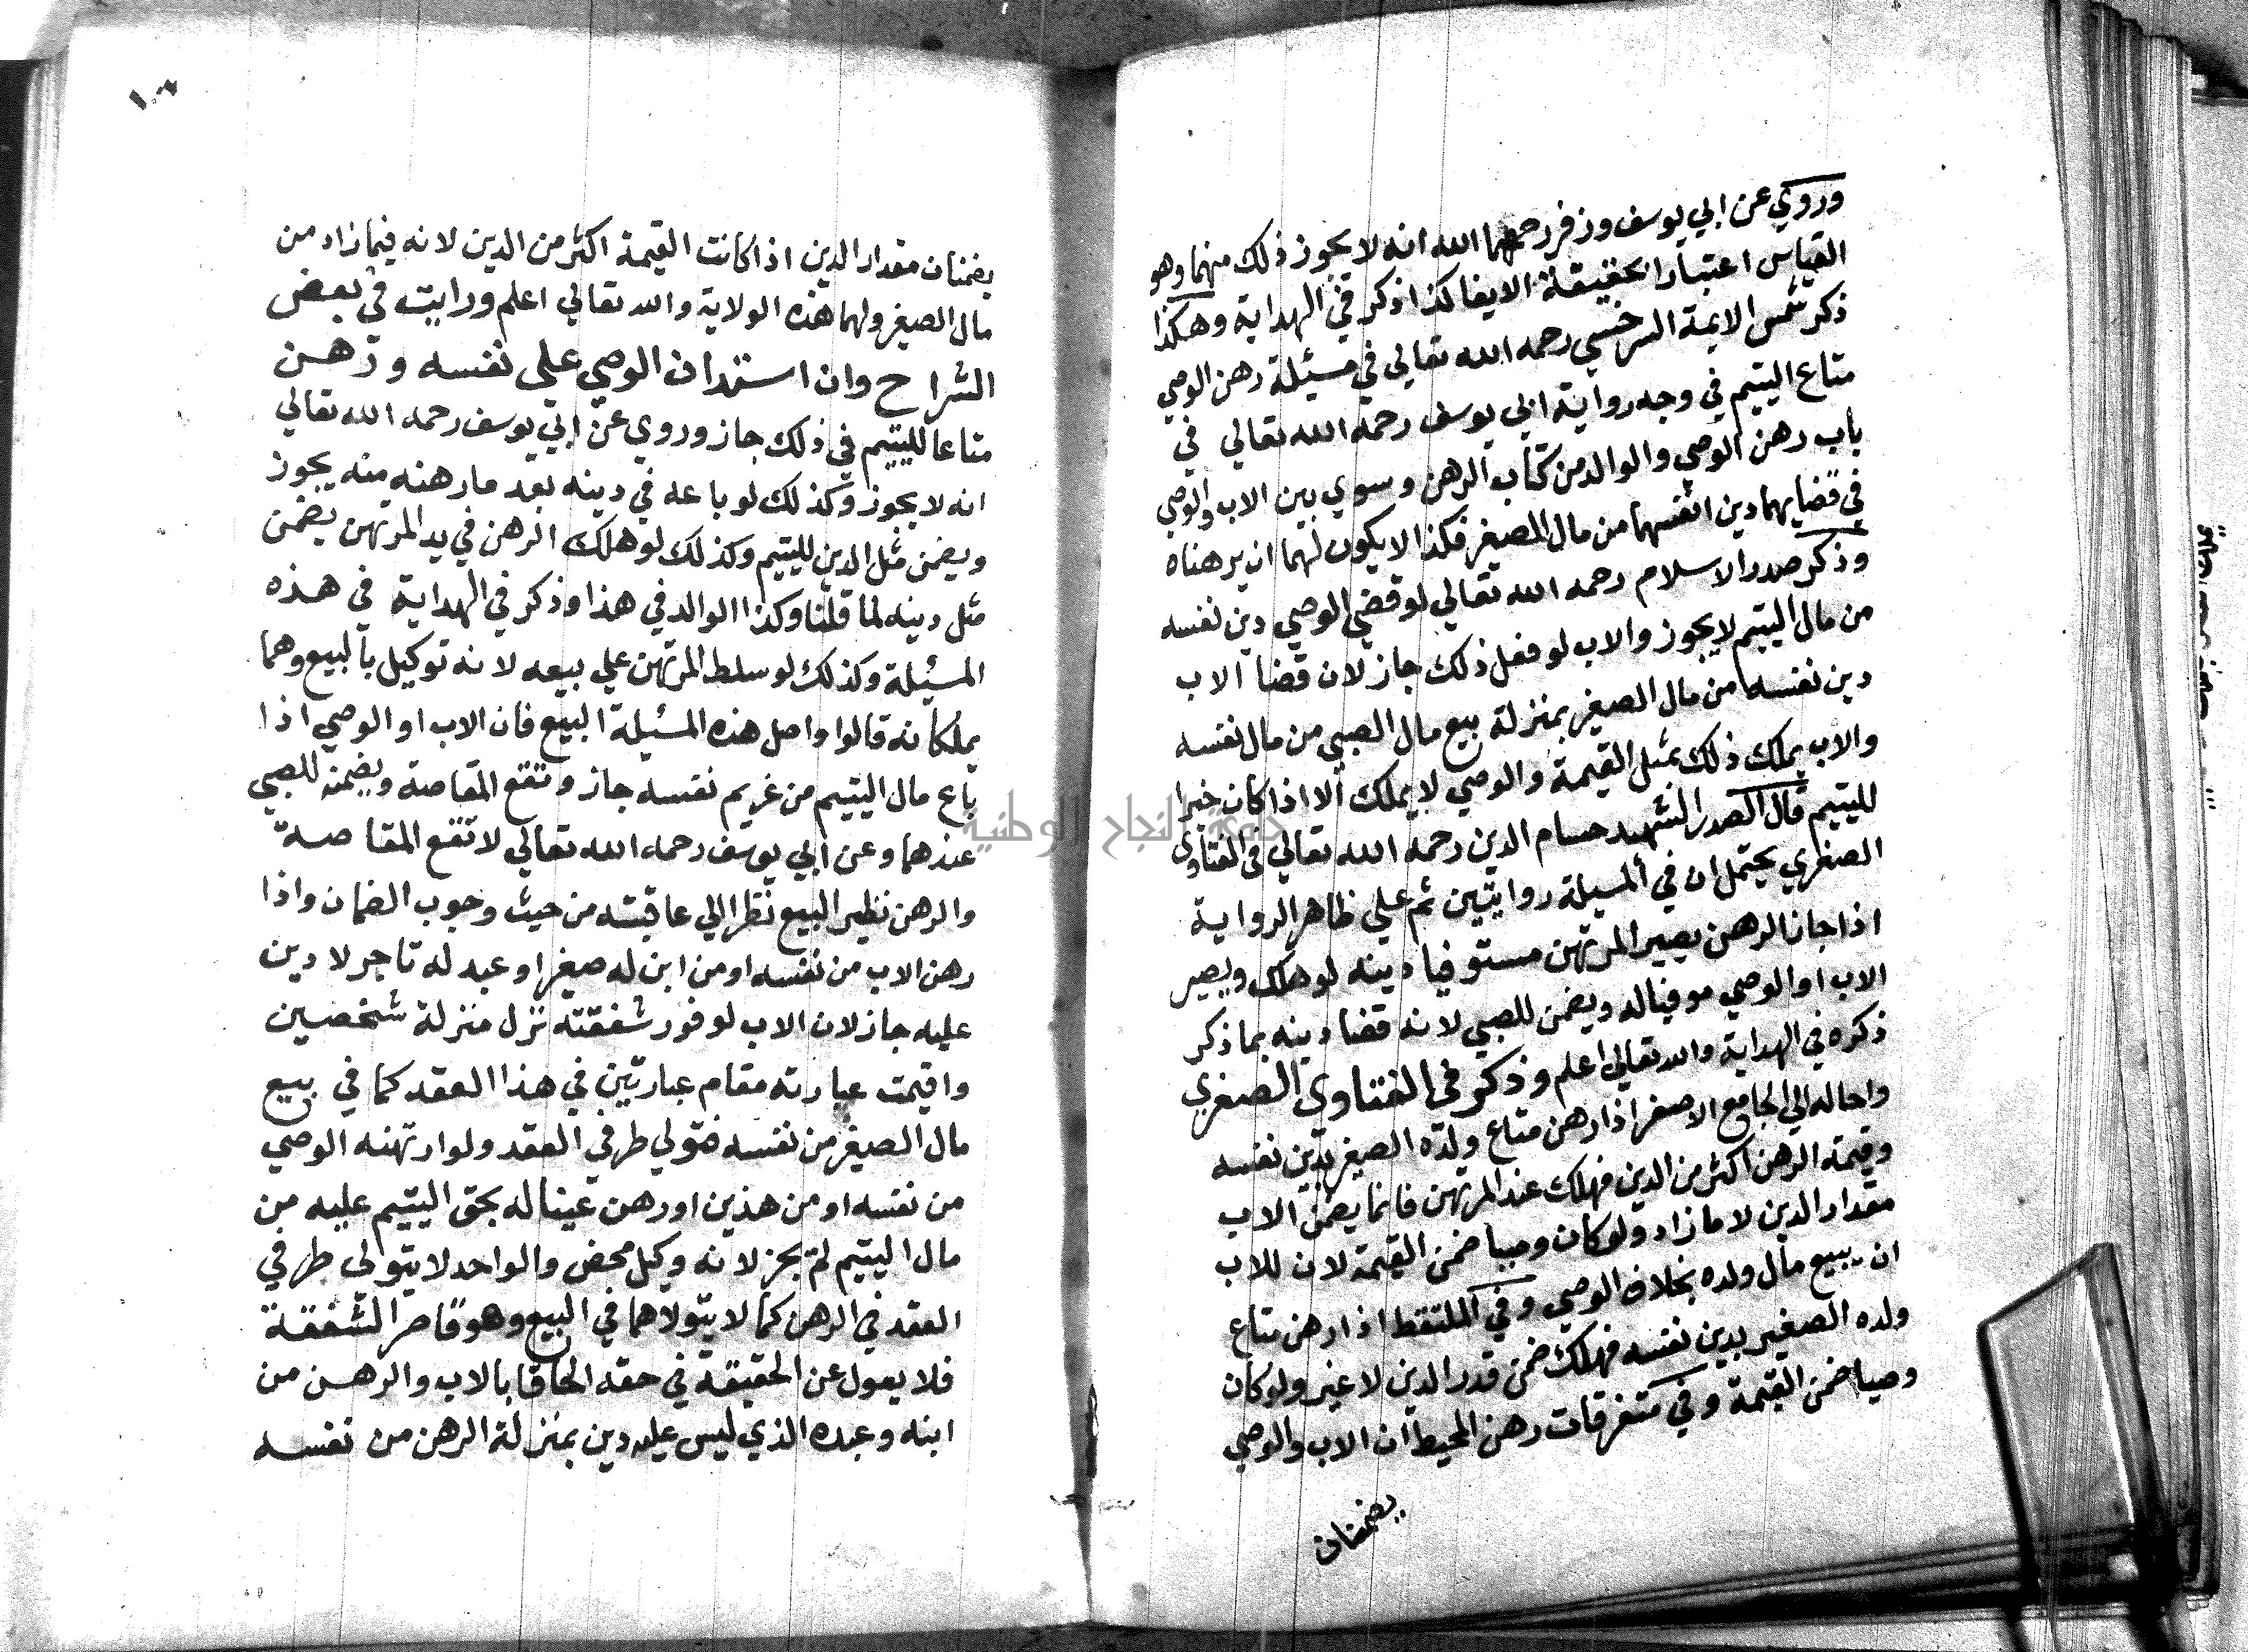 وروي عن ابي يوسف وزفر رحمهما الله انه لا يجوز ذلك منهما وهو
القياس اعتبارا لحقيقة الايفا كذا ذكر في الهداية وهكذا
ذكر شمس الايمة السرخسي رحمه الله تعالي في مسئلة رهن الوصي
متاع اليتيم في وجه رواية ابي يوسف رحمه الله تعالي في
باب رهن الوصي والوالد من كتاب الرهن وسوي بين الاب والوصي
في قضايهما دين انفسهما من مال الصغير فكذا لا يكون لهما ان يرهناه
وذكر صدر الاسلام رحمه الله تعالي لو قضي الوصي دين نفسه
من مال اليتيم لا يجوز والاب لو فعل ذلك جاز لان قضا الاب
دين نفسه من مال الصغير بمنزلة بيع مال الصبي من مال نفسه
والاب يملك ذلك بمثل القيمة والوصي لا يملك الا اذا كان خيرا
لليتيم قال الصدر الشهيد حسام الدين رحمه الله تعالي في الفتاوي
الصغري يحتمل ان في المسيلة روايتين ثم علي ظاهر الرواية
اذا جاز الرهن يصير المرتهن مستوفيا دينه لو هلك ويصير
الاب او الوصي موفيا له ويضمن للصبي لانه قضا دينه بما ذكر
ذكره في الهداية والله تعالي اعلم وذكر في الفتاوي الصغري
واحاله الي الجامع الاصغر اذا رهن متاع ولده الصغير بدين نفسه
وقيمة الرهن اكثر من الدين فهلك عند المرتهن فانما يضمن الاب
مقدار الدين لا ما زاد ولو كان وصيا ضمن القيمة لان للاب
ان يبيع مال ولده بخلاف الوصي وفي الملتقط اذا رهن متاع
ولده الصغير بدين نفسه فهلك ضمن قدر الدين لا غير ولو كان
وصيا ضمن القيمة وفي متفرقات رهن المحيط ان الاب والوصي
يضمنان
١٠٧
يضمنان مقدار الدين اذا كانت القيمة اكثر من الدين لانه فيما زاد من
مال الصغير ولهما هذه الولاية والله تعالي اعلم ورايت في بعض
الشراح وان استدان الوصي علي نفسه ورهن
متاعا لليتيم في ذلك جاز وروي عن ابي يوسف رحمه الله تعالي
انه لا يجوز وكذلك لو باعه في دينه بعد ما رهنه منه يجوز
ويضمن مثل الدين لليتيم وكذلك لو هلك الرهن في يد المرتهن يضمن
مثل دينه لما قلنا وكذا الوالد في هذا وذكر في الهداية في هذه
المسئيلة وكذلك لو سلط المرتهن علي بيعه لانه توكيل بالبيع وهما
يملكانه قالوا واصل هذه المسئيلة البيع فان الاب او الوصي اذا
باع مال اليتيم من غريم نفسه جاز وتقع المقاصة ويضمنه للصبي
عندهما وعن ابي يوسف رحمه الله تعالي لا تقع المقاصة
والرهن نظير البيع نظرا الي عاقبته من حيث وجوب الضمان واذا
رهن الاب من نفسه او من ابن له صغير او عبد له تاجر لا دين
عليه جاز لان الاب لوفور شفقته نزل منزلة شخصين
واقيمت عبارته مقام عبارتين في هذا العقد كما في بيع
مال الصغير من نفسه فتولي طرفي العقد ولو ارتهنه الوصي
من نفسه او من هذين او رهن عينا له بحق اليتيم عليه من
مال اليتيم لم يجز لانه وكيل محض والواحد لا يتولى طرفي
العقد في الرهن كما لا يتولاهما في البيع وهو قاصر الشفقة
فلا يعول عن الحقيقة في حقه الحاقا بالاب والرهن من
ابنه وعبده الذي ليس عليه دين بمنزلة الرهن من نفسه
جامعة النجاح الوطنية